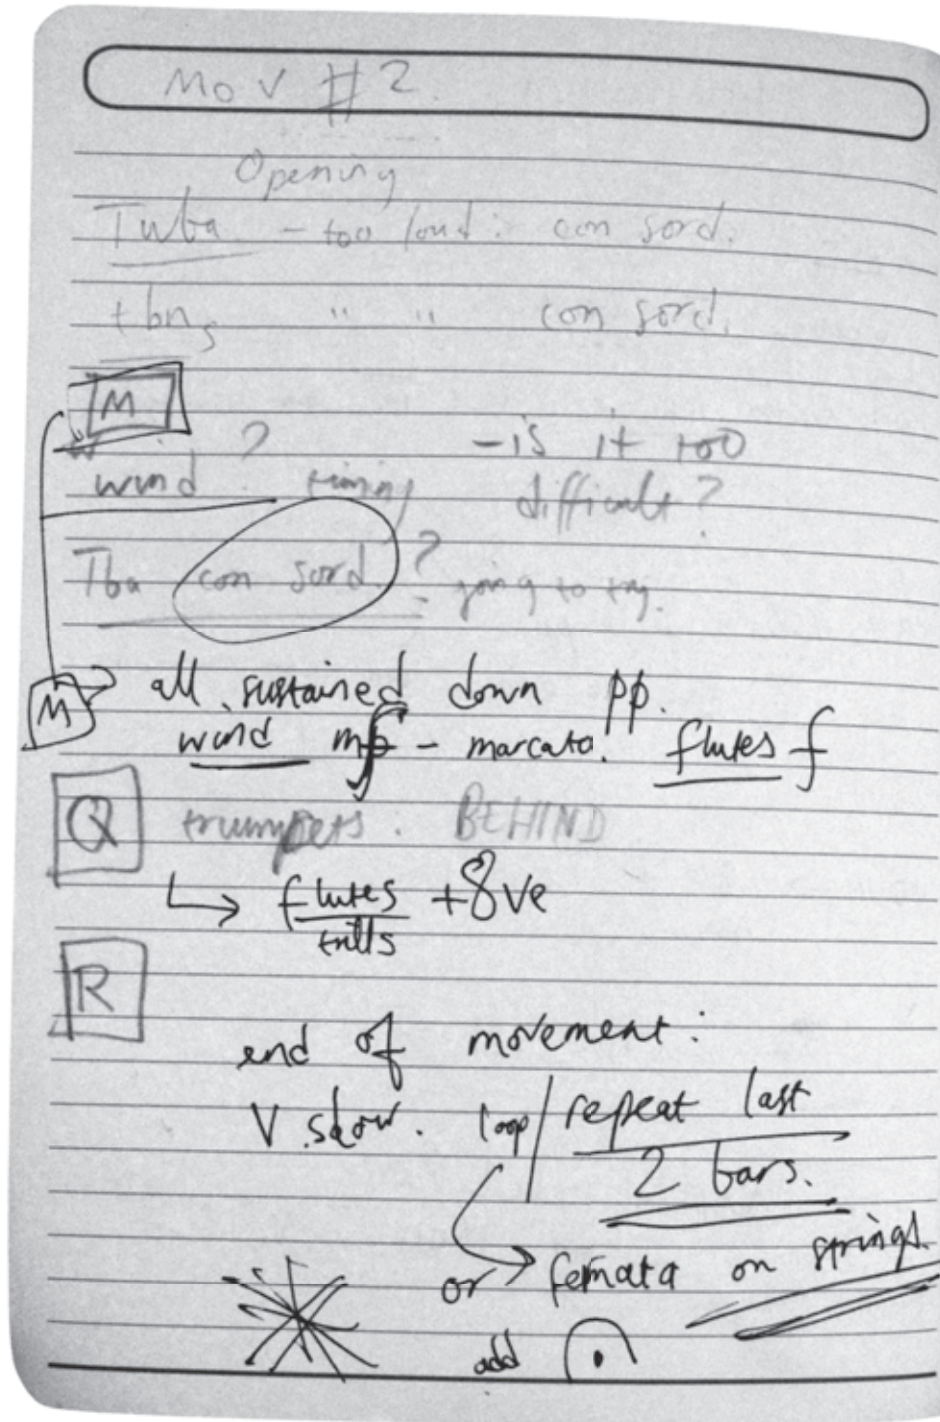 Mov #2.
Opening
Tuba - too loud: con sord.
tbns " " con sord.
M
wind ? timing - is it too
difficult?
Tba con sord. ? - going to try.
M all sustained down pp.
wind mf - marcato. flutes f
Q trumpets. BEHIND
→ flutes +8ve
trills
R
end of movement:
V. slow. loop / repeat last
2 bars.
or → fermata on strings.
add 𝄐